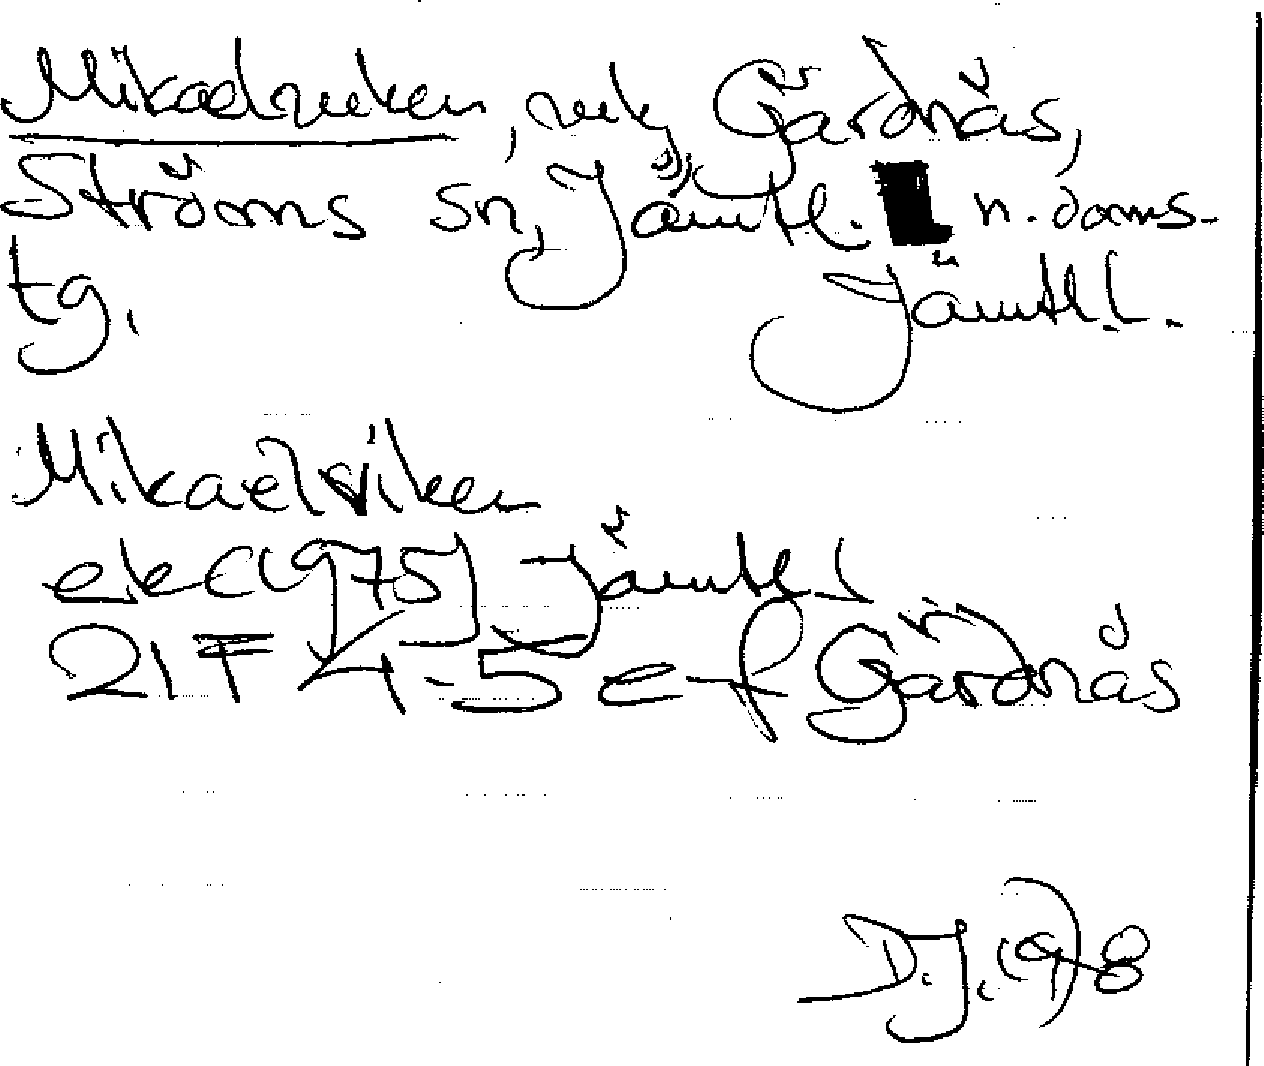 Mikaelviken, vik, Gärdnäs,
Ströms sn, Jämtl. n. doms-
tg. Jämtl. l.
Mikaelviken
ek (1975) Jämtl. l
21 F 4-5 e-f Gärdnäs
D. J. 1978